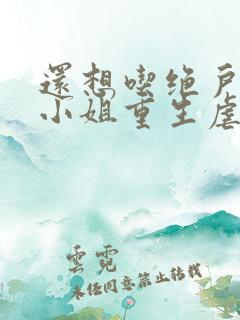 還想喫绝戶
小姐重生虐
雲霓
未经同意禁止转载